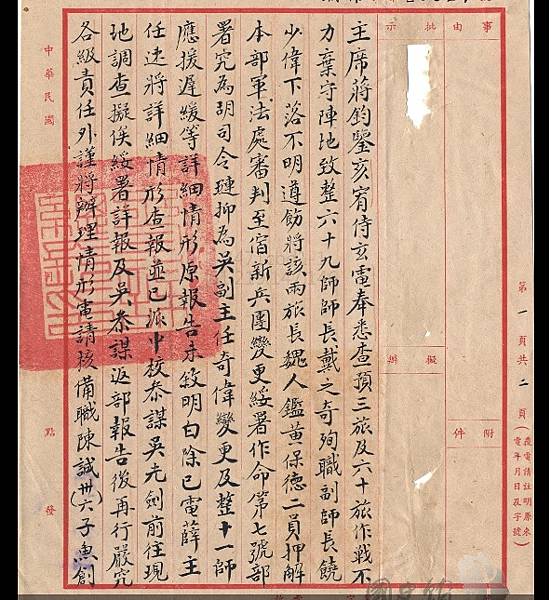 事由
批示
擬辦
附件
第一頁共二頁
(覆電請註明原來電年月日及字號)
主席蔣鈞鑒亥宥侍玄電奉悉查預三旅及六十旅作戰不
力棄守陣地致整六十九師師長戴之奇殉職副師長饒
少偉下落不明遵飭將該兩旅長魏人鑑黃保德二員押解
本部軍法處審判至宿新兵團變更綏署作命第七號部
署究為胡司令璉抑為吳副主任奇偉變更及整十一師
應援遲緩等詳細情形原報告未敘明白除已電薛主
任速將詳細情形查報並已派中校參謀吳光劍前往現
地調查擬俟綏署詳報及吳參謀返部報告後再行嚴究
各級責任外謹將辦理情形電請核備職陳誠(卅)六子魚創
中華民國
月
點發